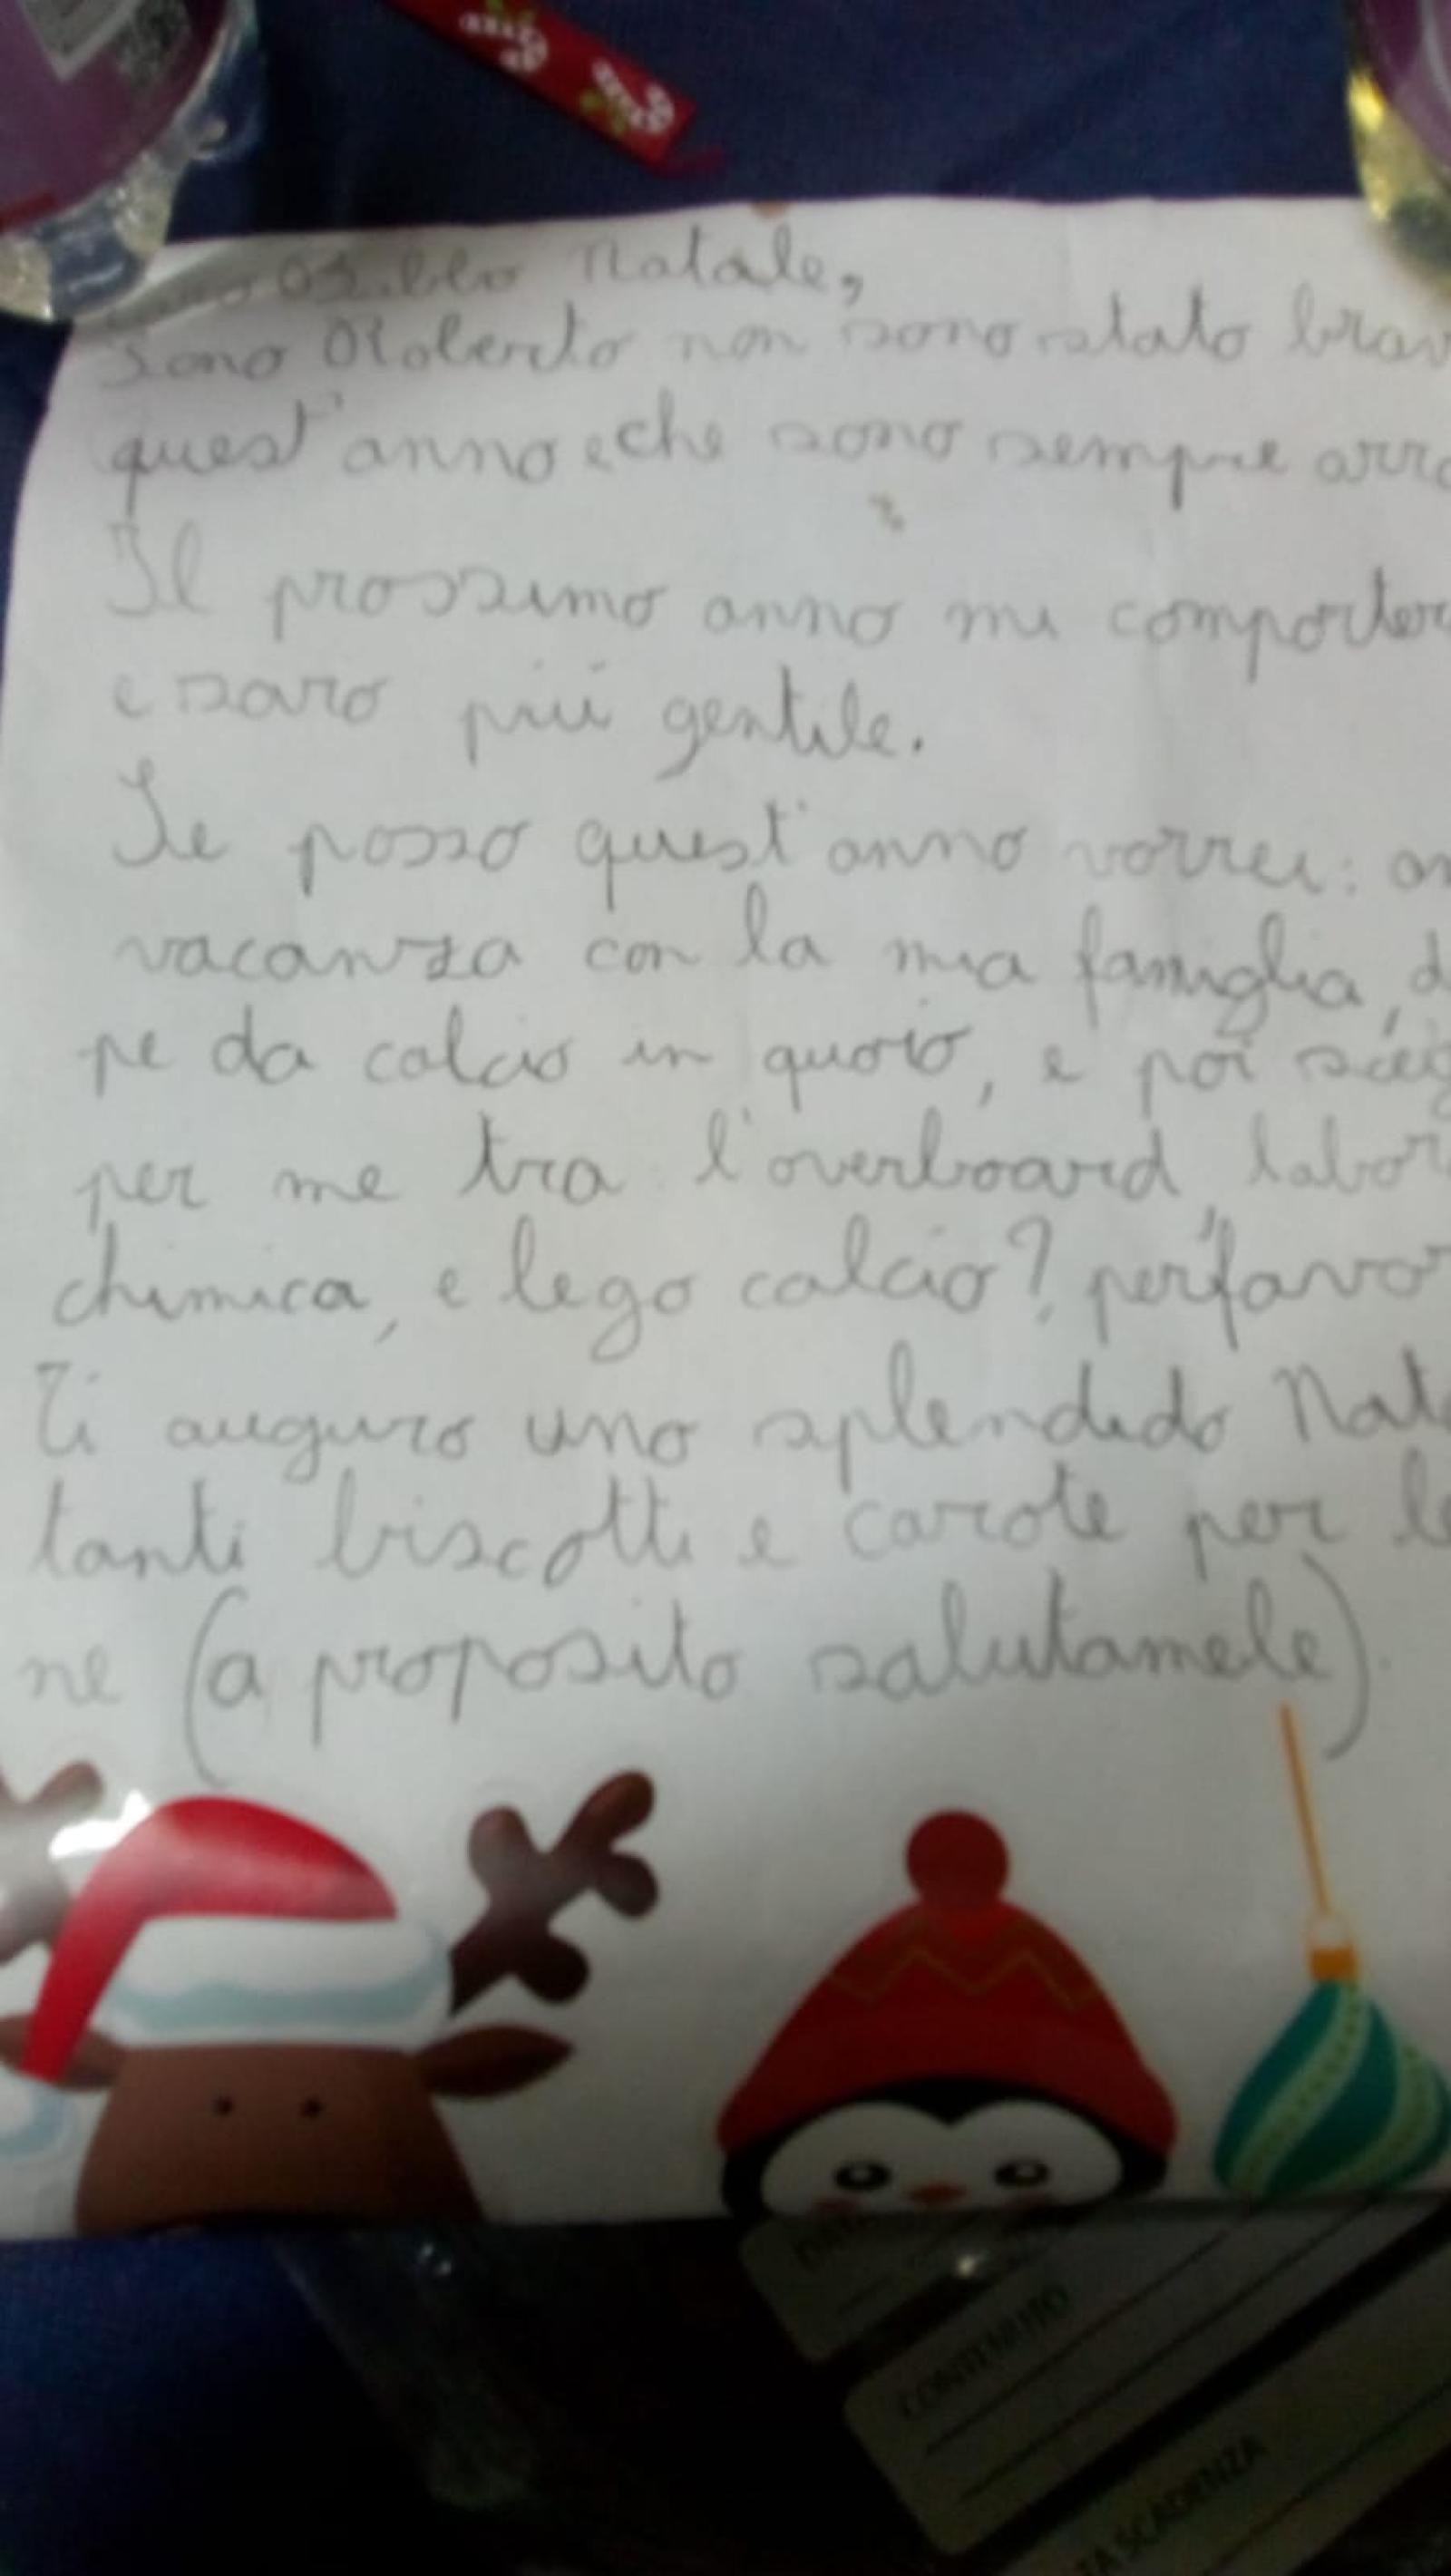 Babbo Natale,
Sono Roberto non sono stato brav
quest'anno e che sono sempre arr
Il prossimo anno mi comporter
e saro più gentile.
Se posso quest'anno vorrei: an
vacanza con la mia famiglia, d
pe da calcio in quoio, e poi
per me tra l'overboard, labor
chimica, e lego calcio? perfavor
Ti auguro uno splendido Nat
tanti biscotti e carote per le
ne (a proposito salutamele).
CONTENUTO
TA SCADENZA